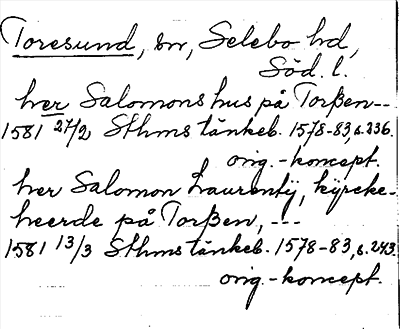 Toresund, sn, Selebo hd,
Söd. l.
her Salomons hus på Torßen--
1581 27/2 Sthms tänkeb. 1578-83, s. 236.
orig.-koncept.
her Salomon Laurentij, kyrcke-
heerde på Torßen, ---
1581 13/3 Sthms tänkeb. 1578-83, s. 243.
orig.-koncept.